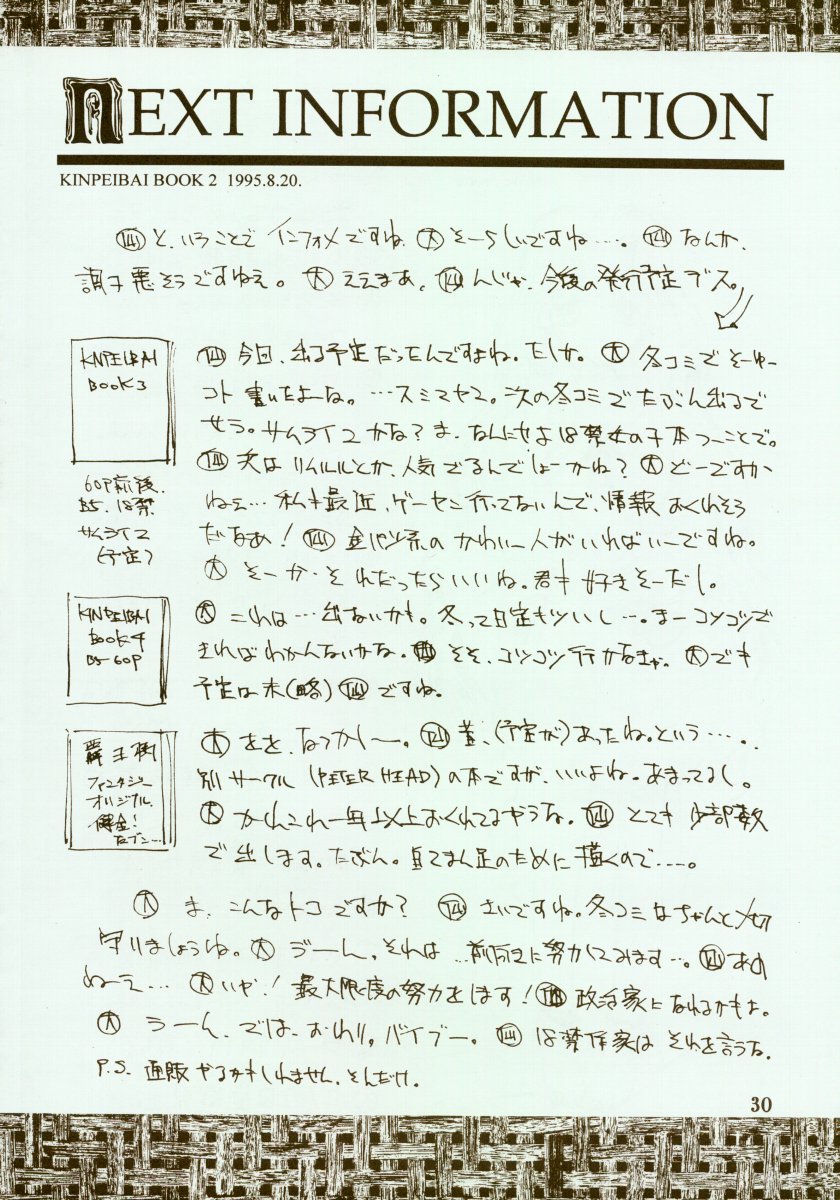 NEXT INFORMATION
KINPEIBAI BOOK 2 1995.8.20.
と、いうことで インフォメですね。 大 そーらしいですね…。 なんか、
調子悪そうですねえ。 大 ええまあ。 んじゃ、今後の発行予定デス。
KINPEIBAI
BOOK3
60P前後.
B5. 18禁
サムライ2
(予定)
今回、出る予定だったんですよね。たしか。 大 冬コミでそーゆー
コト書いたよーな。…スミマセン。次の冬コミでたぶん出るで
せう。サムライ2かな?ま、なんにせよ18禁女の子本つーことで。
大はリムルルとか、人気でるんでしょーかね? 大 どーですか
ねぇ…私も最近、ゲーセン行ってないんで、情報おくれそう
だなあ! 金パツ系のかわいー人がいればいーですね。
大 そーか・それだったらいいね。君も好きそーだし。
KINPEIBAI
BOOK4
B5 60P
大 これは…出ないかも。冬って日定もツいし…。まーコツコツで
きればわかんないかな。 そそ、コツコツ行かなきゃ。 大 でも
予定は未(略) ですね。
覇王樹
ファンタジー
オリジナル
!
たブン…
大 をを、なつかしー。 昔、(予定が)あったね。という…..
別サークル (PETER HEAD) の本ですが、いいよね。あまってるし。
大 かれこれ一年以上おくれてるやうな。 とても少部数
で出します。たぶん。 のために描くので…。
大 ま、こんなトコですか? さいですね。冬コミはちゃんと〆切
守りましょうね。 大 うーん、それは…前向きに努力してみます…。 あの
ねーえ… 大 いや!最大限度の努力をします! 政治家になれるかもよ。
大 うーん、では、おわり。バイブー。 18禁作家はそれを言うな.
P.S. 通販やるかもしれません。そんだけ.
30